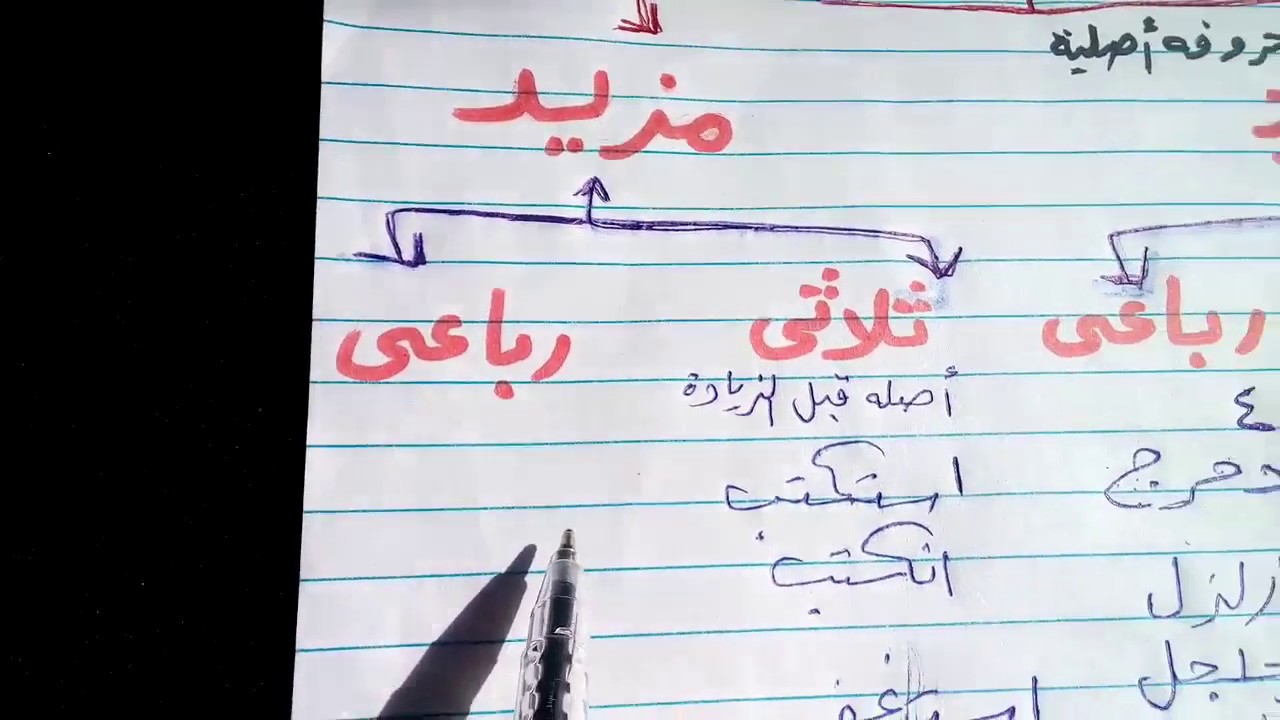 حروفه أصلية
مزيد
رباعى ثلاثى رباعى
أصله قبل الزيادة
٤
استكتب
دحرج
انكتب
زلزل
جلجل